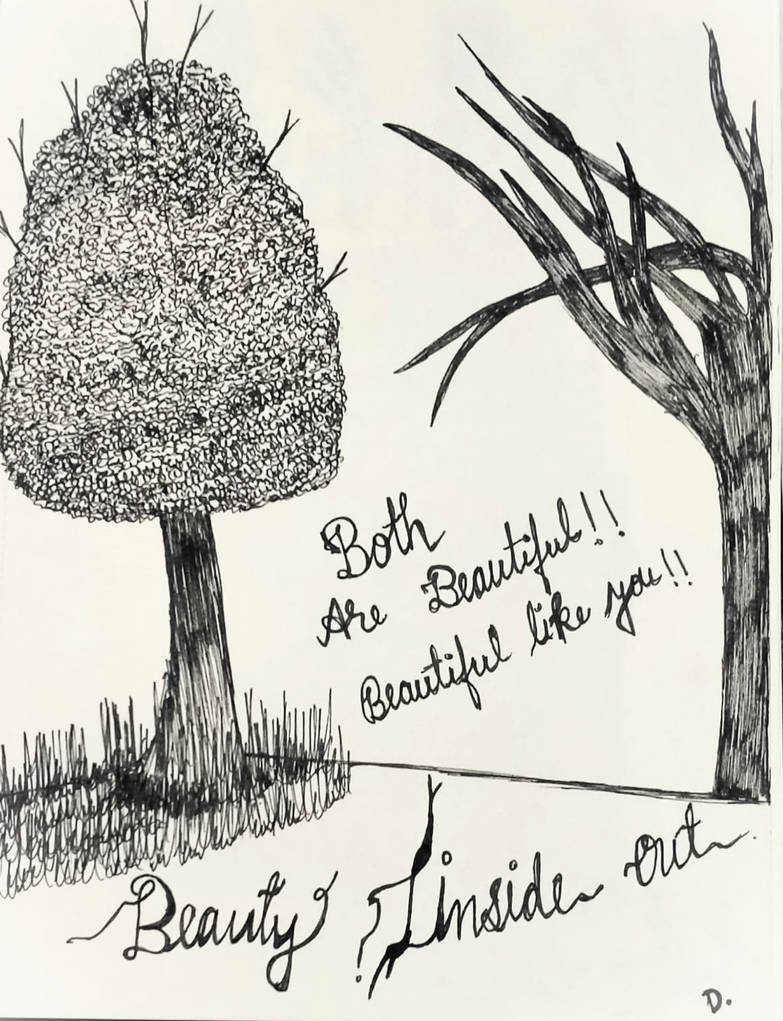 Both
Are Beautiful!!
Beautiful like you!!
Beauty inside out
D.